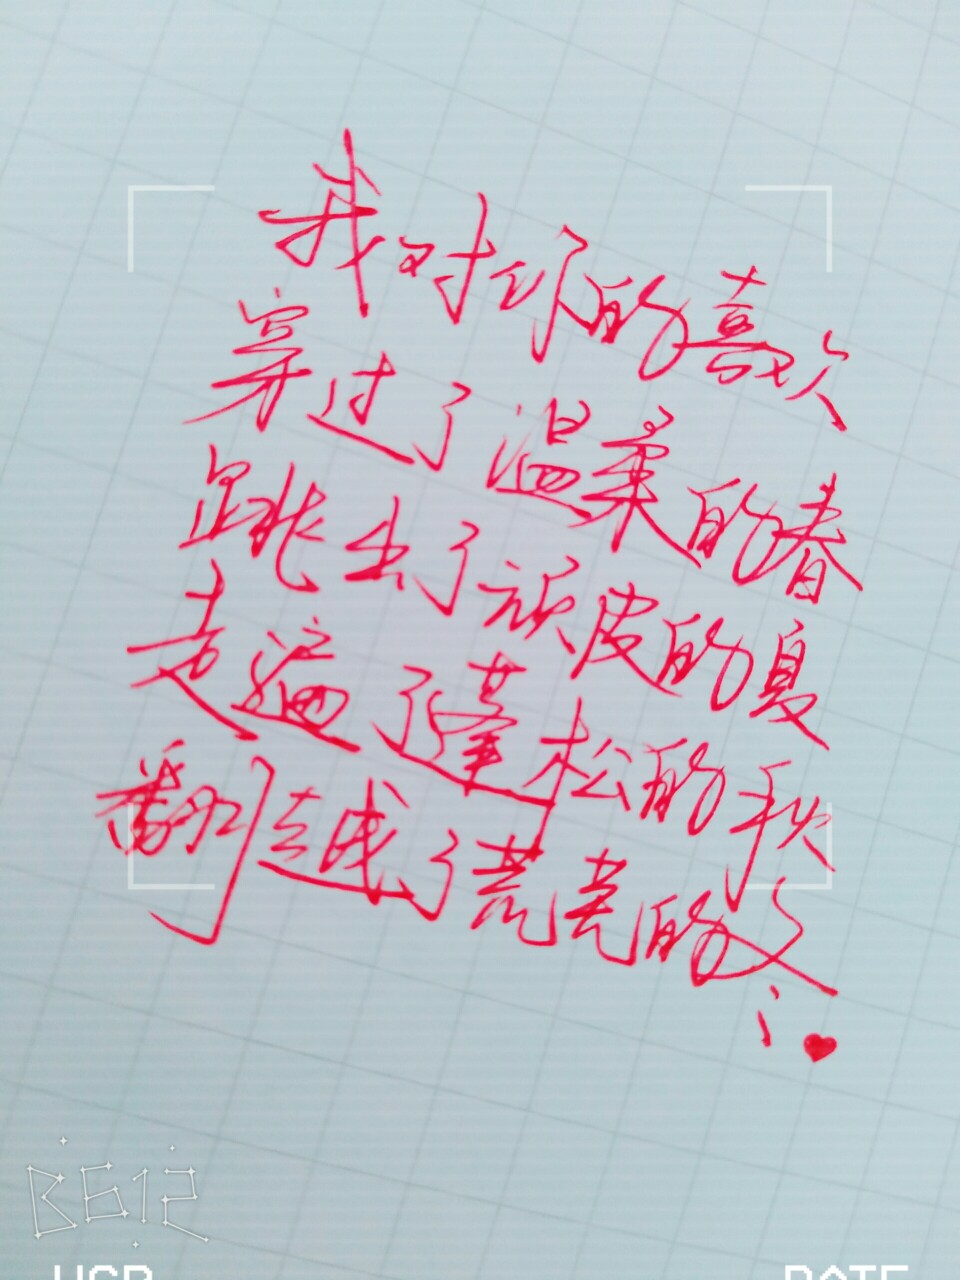 我对你的喜欢
穿过了温柔的春
跳出了顽皮的夏
走遍了蓬松的秋
翻越了荒芜的冬
B612